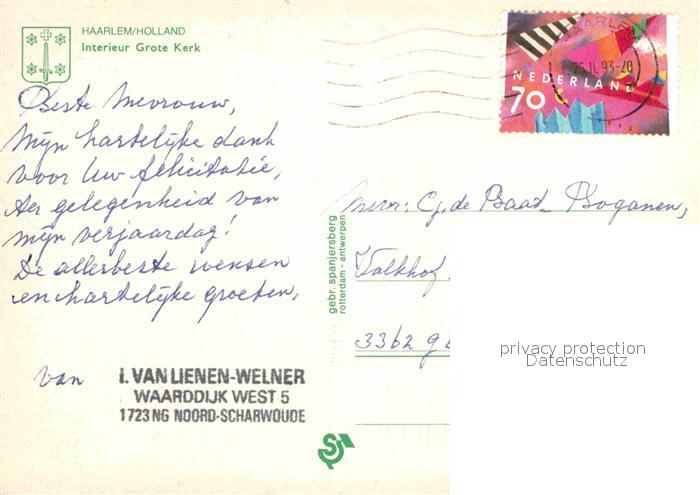 HAARLEM/HOLLAND
Interieur Grote Kerk
Beste Mevrouw,
Mijn hartelijke dank
voor Uw felicitatie,
ter gelegenheid van
mijn verjaardag!
De allerbeste wensen
en hartelijke groeten,
van
I. VAN LIENEN-WELNER
WAARDDIJK WEST 5
1723 NG NOORD-SCHARWOUDE
gebr. spanjersberg
rotterdam - antwerpen
HAARLEM
25.II.93-20
NEDERLAND
70
Mevr: C.J. de Baat
Valkhof
3362 G
privacy protection
Datenschutz